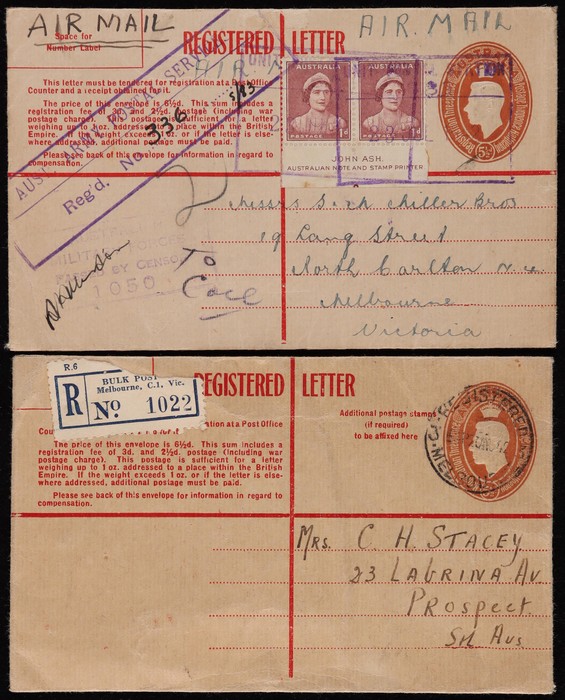 AIR MAIL
AIR. MAIL
Space for
Number Label
REGISTERED LETTER
AIR
This letter must be tendered for registration at a Post Office
Counter and a receipt obtained for it.
The price of this envelope is 6½d. This sum includes a
registration fee of 3d. and 2½d. postage (including war
postage charge). This postage is sufficient for a letter
weighing up to 1 oz. addressed to a place within the British
Empire. If the weight exceeds 1 oz. or if the letter is else-
where addressed, additional postage must be paid.
Please see back of this envelope for information in regard to
compensation.
AUST. ARMY POSTAL SERVICE
Reg'd. No. 336
AUSTRALIA AUSTRALIA
1d 1d
JOHN ASH.
AUSTRALIAN NOTE AND STAMP PRINTER
5½
Messrs
Miller Bros
19 Lang Street
North Carlton N.4.
Melbourne
Victoria
MILITARY FORCES
PASSED BY CENSOR
1050
To
2
R.6
R
BULK POST
Melbourne, C.1, Vic.
No 1022
REGISTERED LETTER
registration at a Post Office
Counter
The price of this envelope is 6½d. This sum includes a
registration fee of 3d. and 2½d. postage (including war
postage charge). This postage is sufficient for a letter
weighing up to 1 oz. addressed to a place within the British
Empire. If the weight exceeds 1 oz. or if the letter is else-
where addressed, additional postage must be paid.
Please see back of this envelope for information in regard to
compensation.
Additional postage stamps
(if required)
to be affixed here
Mrs. C. H. STACEY
23 LABRINA AV
PROSPECT
Sth Aus